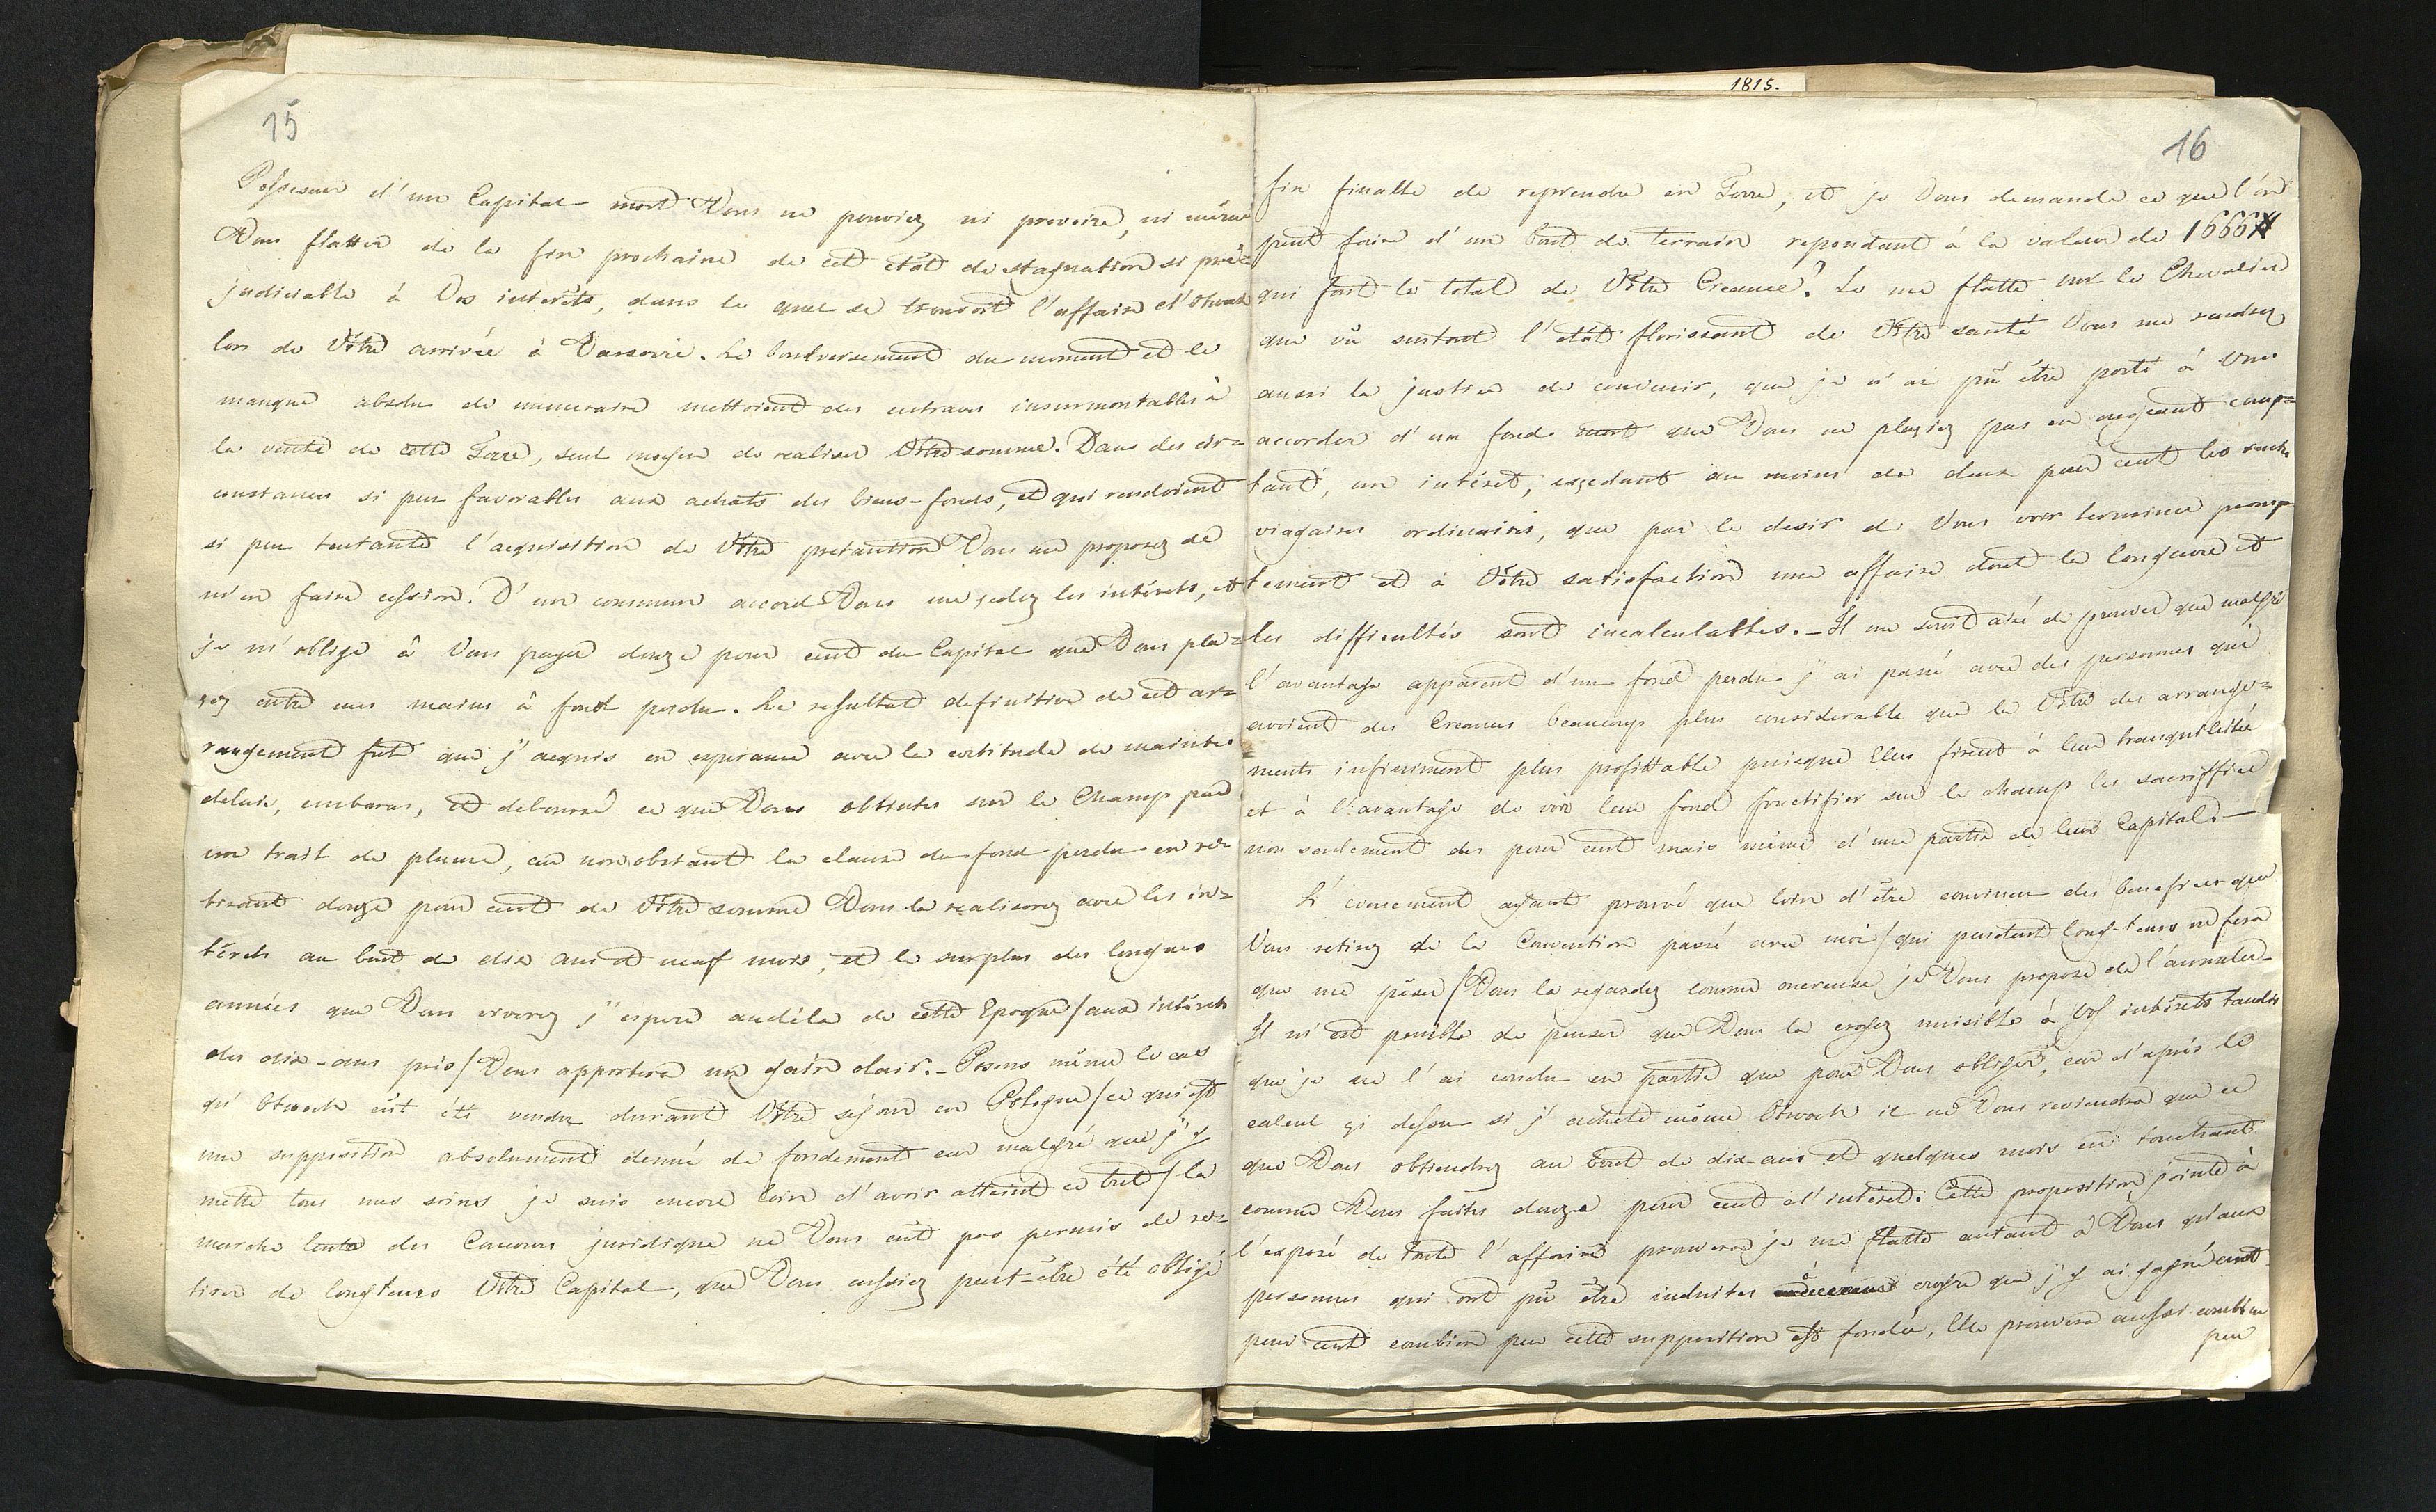 15
Possesseur d'un Capital mort Vous ne pouviez ni prevoire, ni même
Vous flatter de la fin prochaine de cet êtat de stagnation si pré=
judiciable à Vos interêts, dans le quel se trouvoit l'affaire d'Otwock
lors de Vôtre arrivée à Varsovie. Le boulversement du moment et le
manque absolu de numeraire mettoient des entraves insurmontables à
la vente de cette Terre, seul moyen de realiser Vôtre somme. Dans des cir=
constances si peu favorables aux achats des biens-fonds, et qui rendoient
si peu tentante l'aquisition de Vôtre pretention Vous me proposez de
m'en faire cession. D'un commun accord Vous me cedez les intérets, et
je m'oblige à Vous payer douze pour cent du Capital que Vous pla=
cez entre mes mains à fond perdu. Le resultat definitive de cet ar=
rangement fut que j'aquis en esperance avec la certitude de maintes
delais, embaras, et deboursé ce que Vous obtintes sur le Champ par
un trait de plume, car nonobstant la clause du fond perdu en re=
tirant douze pour cent de Vôtre somme Vous la realiserez avec les in=
térets au bout de dix ans et neuf mois, et le surplus des longues
années que Vous viverez j'espere audéla de cette Epoque / aux intérets
des dix-ans près / Vous apportera un gain clair. - Posons même le cas
qu'Otwock eût été vendu durant Vôtre séjour en Pologne / ce qui est
une supposition absolument denué de fondement car malgré que j'y
mette tous mes soins je suis encore loin d'avoir atteint ce but / la
marche lente des Concours juridique ne Vous eût pas permis de re=
tirer de longtems Vôtre Capital, que Vous eussiez peut-être été obligé
1815.
16
fin finalle de reprendre en Terre, et je Vous demande ce que l'on
peut faire d'un bout de terrain repondant à la valeur de 1666#
qui font le total de Vôtre Creance? Je me flatte mr le Chevalier
que vû surtout l'etât florissant de Vôtre santé Vous me rendrez
aussi la justice de convenir, que je n'ai pû être porté à Vous
accorder d'un fond mort que Vous ne plaçiez pas en argeant comp=
tant, un intéret, exçedant au moins de deux pour cent les rentes
viagaires ordinaires, que par le desir de Vous voir terminer promp=
tement et à Vôtre satisfaction une affaire dont la longueure et
les difficultés sont incalculables. - Il me seroit aisé de prouver que malgré
l'avantage apparent d'un fond perdu j'ai passé avec des personnes qui
avoient des Creances beaucoup plus considerable que la Vôtre des arrange=
ments infiniment plus profittable puisque Elles firent à leur tranquilitée
et à l'avantage de voir leur fond fructifier sur le champ les sacriffice
non seulement des pour cent mais même d'une partie de leur Capital. -
L'evenement ayant prouvé que loin d'être convincu des benefices que
Vous retirez de la Convention passé avec moi / qui pendant long-tems ne fera
que me péser / Vous la regardez comme onereuse je Vous propose de l'annuler -
Il m'est penible de penser que Vous la croyez nuisible à Vos intérets tandis
que je ne l'ai conclu en partie que pour Vous obliger, car d'après le
calcul çi dessu si j'achete même Otwock il ne Vous reviendra que ce
que Vous obtiendrez au bout de dix-ans et quelques mois en touchant
comme Vous faites douze pour cent d'intéret. Cette proposition jointe à
l'exposé de toute l'affaire prouvera je me flatte autant à Vous qu'aux
personnes qui ont pû être induites à croyre que j'y ai gagné cent
pour cent combien peu cette supposition est fondée, Elle prouvera aussi combien
peu